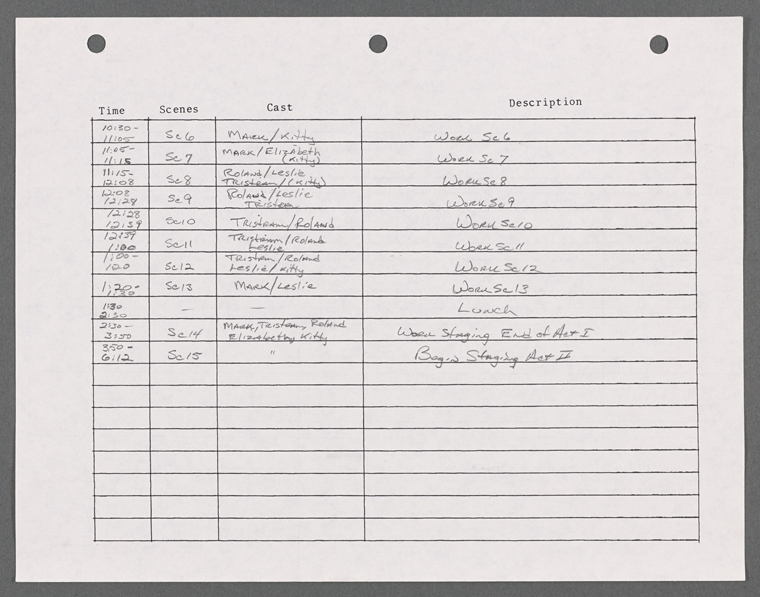 Time Scenes Cast Description
10:30-
11:05 Sc6 Mark/Kitty Work Sc6
11:05- Mark/Elizabeth
11:15 Sc7 (Kitty) Work Sc7
11:15- Roland/Leslie
12:08 Sc8 Tristram/(Kitty) Work Sc8
12:08 Roland/Leslie
12:28 Sc9 Tristram Work Sc9
12:28
12:39 Sc10 Tristram/Roland Work Sc10
12:39 Tristram/Roland
1:00 Sc11 Leslie Work Sc11
1:00- Tristram/Roland
1:20 Sc12 Leslie/Kitty Work Sc12
1:20-
1:30 Sc13 Mark/Leslie Work Sc13
1:30
2:30 — — Lunch
2:30- Mark, Tristram, Roland
3:50 Sc14 Elizabeth, Kitty Work Staging End of Act I
3:50-
6:12 Sc15 " Begin Staging Act II